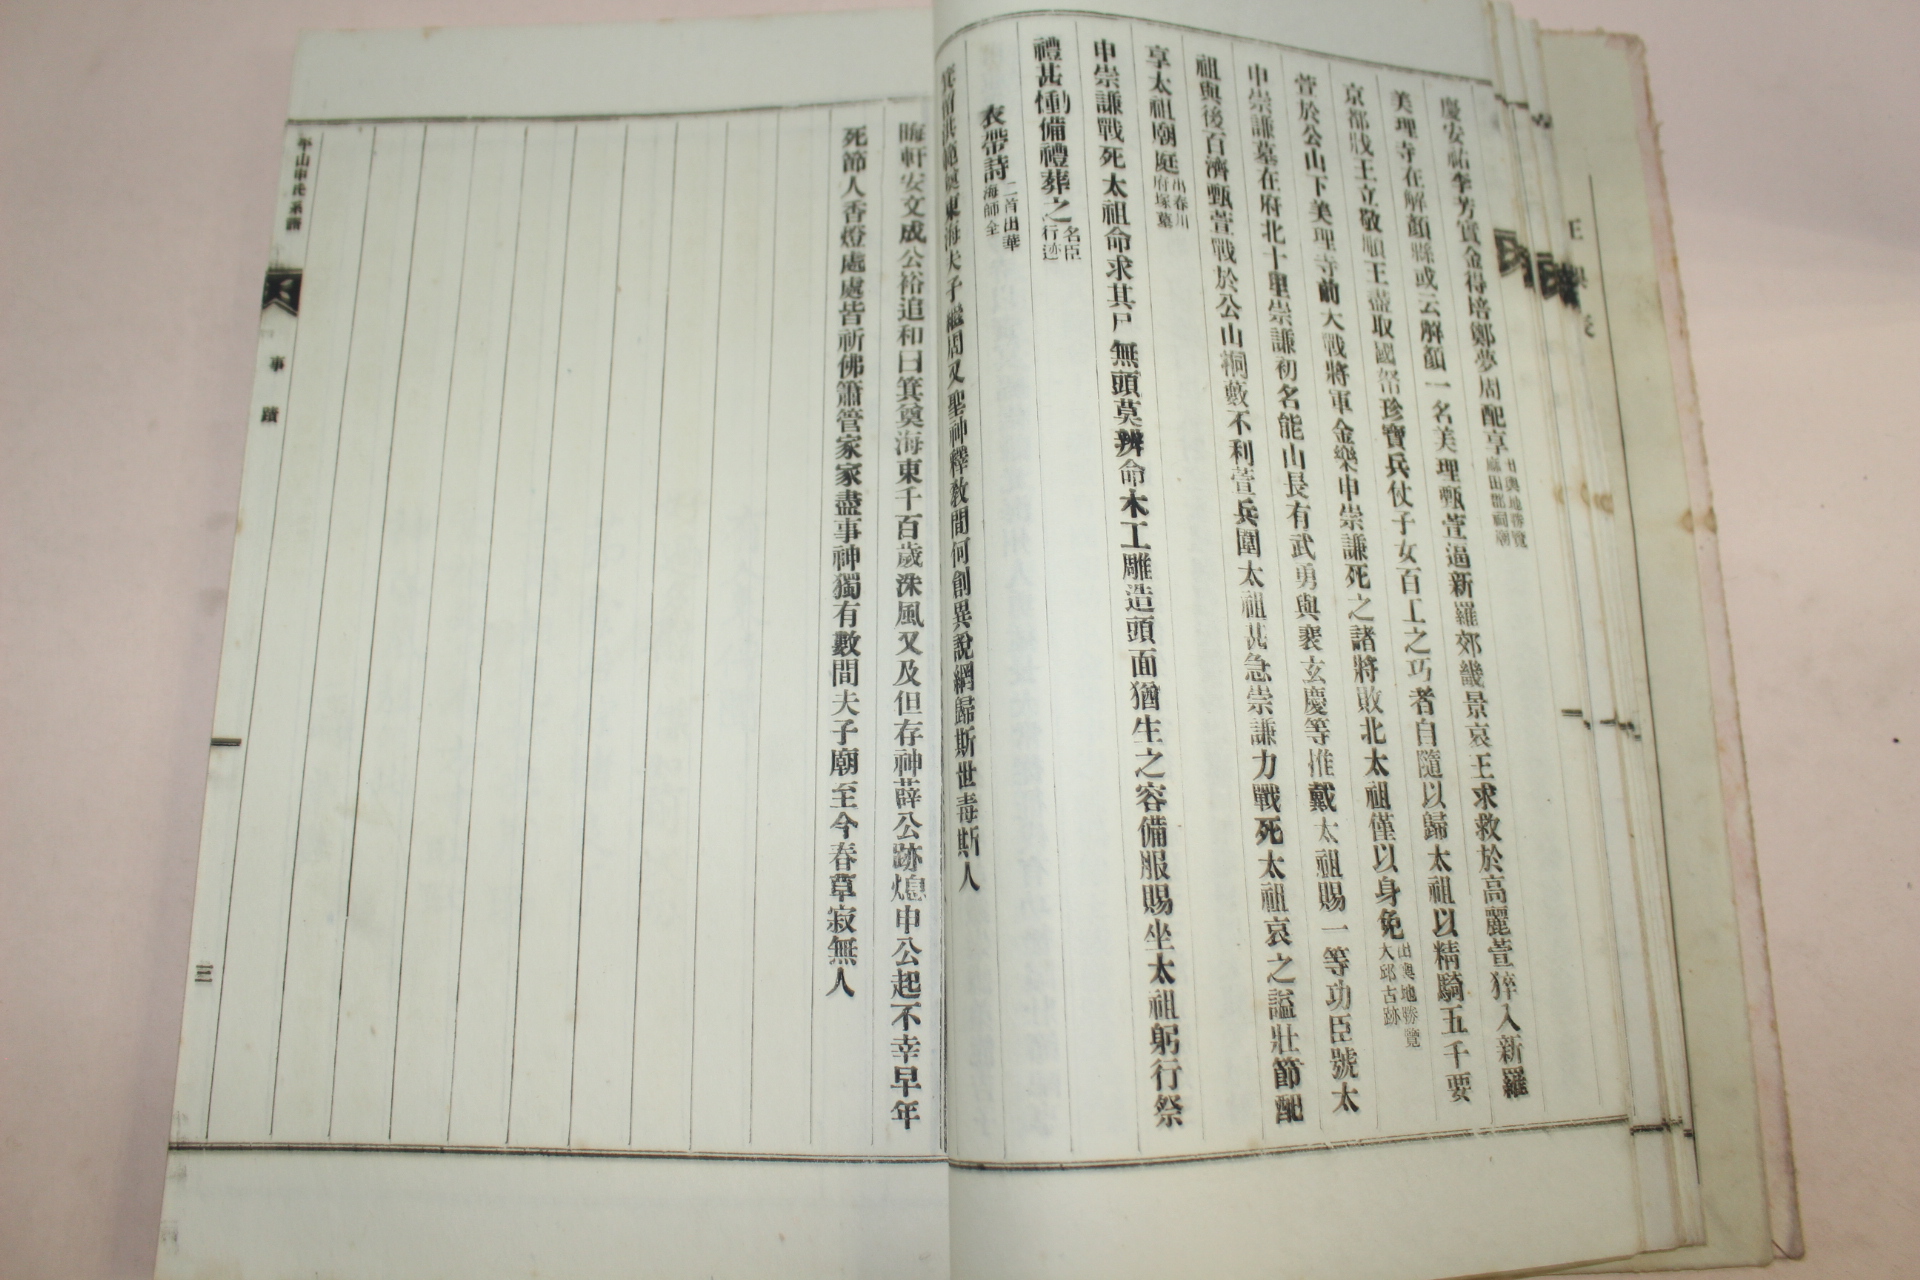 慶安祐李芳實金得培鄭夢周配享出輿地勝覽麻田郡祠廟
美理寺在解顏縣或云解顏一名美理甄萱逼新羅郊畿景哀王求救於高麗萱猝入新羅
京都戕王立敬順王盡取國帑珍寶兵仗子女百工之巧者自隨以歸太祖以精騎五千要
萱於公山下美理寺前大戰將軍金樂申崇謙死之諸將敗北太祖僅以身免出輿地勝覽大邱古跡
申崇謙墓在府北十里崇謙初名能山長有武勇與裵玄慶等推戴太祖賜一等功臣號太
祖與後百濟甄萱戰於公山桐藪不利萱兵圍太祖甚急崇謙力戰死太祖哀之謚壯節配
享太祖廟庭出春川府塚墓
申崇謙戰死太祖命求其尸無頭莫辨命木工雕造頭面猶生之容備服賜坐太祖躬行祭
禮甚慟備禮葬之名臣行迹
衣帶詩二首出華海師全
東海夫子繼周又聖神釋敎間何創異說網歸斯世毒斯人
晦軒安文成公裕追和曰箕奠海東千百歲洙風又及但存神薛公跡熄申公起不幸早年
死節人香燈處處皆祈佛簫管家家盡事神獨有數間夫子廟至今春草寂無人
平山申氏系譜
事蹟
三